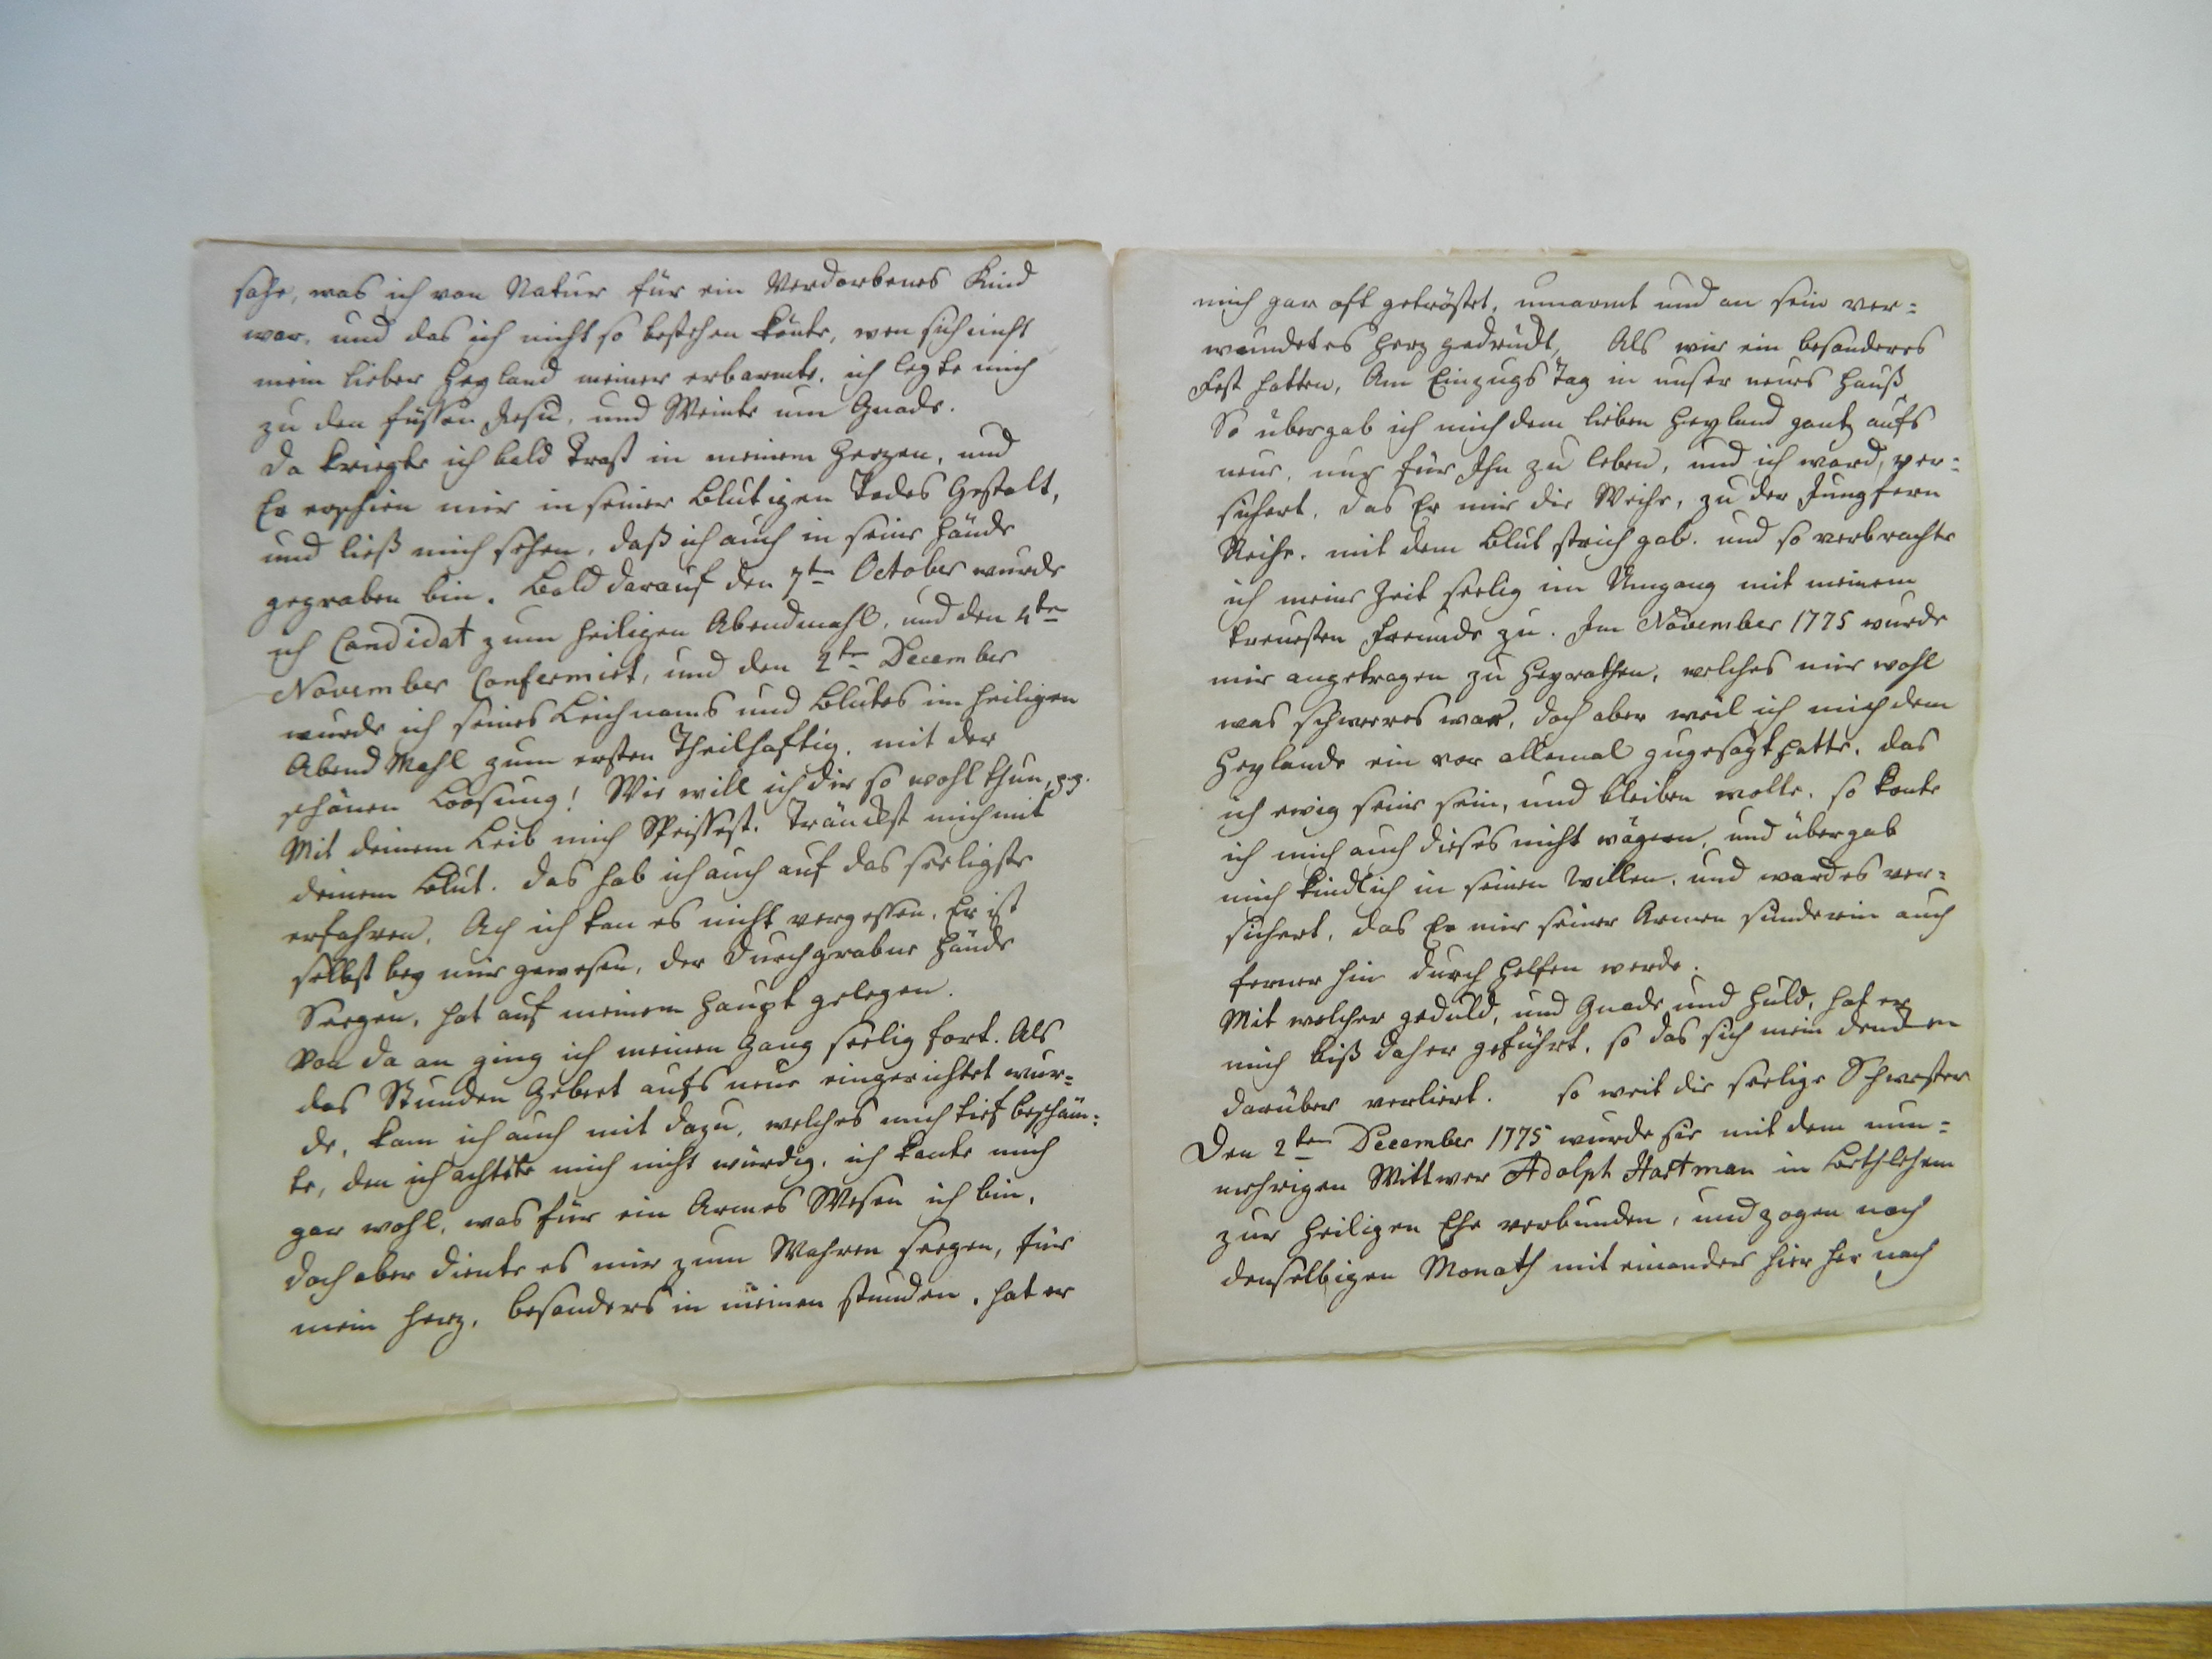 sahe, was ich von Natur für ein Verdorbenes Kind
war, und das ich nicht so bestehen könte, wen sich nicht
mein lieber Heyland meiner erbarmte. ich legte mich
zu den füssen Jesu, und Weinte um Gnade.
Da kriegte ich bald Trost in meinem Herzen, und
Er erschien mir in seiner blutigen Todes Gestalt,
und ließ mich sehen, daß ich auch in seine Hände
gegraben bin. Bald darauf den 7ten October wurde
ich Candidat zum heiligen Abendmahl, und den 4ten
November Confermirt, und den 2ten December
wurde ich seines Leichnams und Blutes im heiligen
Abend Mahl zum ersten Theilhaftig. mit der
schönen Loosung! Wie will ich dir so wohl thun,
Mit deinem Leib mich Speissest. Tränckst mich mit
deinem Blut. das hab ich auch auf das seeligste
erfahren. Ach ich kan es nicht vergessen. Er ist
selbst bey mir gewesen, der Durchgrabne Hände
Seegen, hat auf meinem Haupt gelegen.
Von da an ging ich meinen Gang seelig fort. Als
das Stunden Gebeet aufs neue eingerichtet wur=
de, kam ich auch mit dazu, welches mich tief beschäm=
te, den ich achtete mich nicht würdig. ich kante mich
gar wohl, was für ein Armes Wesen ich bin,
doch aber diente es mir zum Wahren seegen, für
mein Herz, besonders in meinen stunden, hat er
mich gar oft getröstet, umarmt und an sein ver=
wundetes Herz gedrückt, Als wir ein besonderes
Fest hatten, Am Einzugs Tag in unser neues Hauß
So übergab ich mich dem lieben Heyland gantz aufs
neue, nur für Ihn zu leben, und ich ward, ver=
sichert, das Er mir die Weihe, zu der Jungfern
Reihe, mit dem Blut strich gab. und so verbrachte
ich meine Zeit seelig im Umgang mit meinem
treuesten Freunde zu. Im November 1775 wurde
mir angetragen zu Heyrathen, welches mir wohl
was schweres war, doch aber weil ich mich dem
Heylande ein vor allemal zugesagt hatte, das
ich ewig seine sein, und bleiben wolte, so konte
ich mich auch dieses nicht wägern, und übergab
mich kindlich in seinen Willen, und ward es ver=
sichert, das Er mir seiner Armen sünderin auch
ferner hin durch helfen werde.
Mit welcher geduld, und Gnade und Huld, hat er
mich biß daher geführt, so das sich mein dencken
darüber verliert. so weit die seelige Schwester
Den 2ten December 1775 wurde sie mit dem nun=
mehrigen Wittwer Adolph Hartman in Bethlehem
zur heiligen Ehe verbunden, und zogen noch
denselbigen Monath mit einander hier her nach